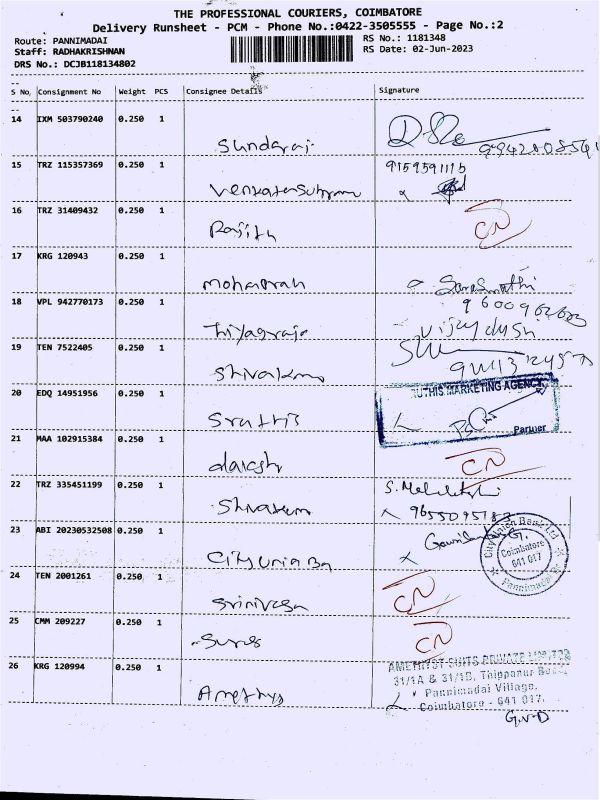 THE PROFESSIONAL COURIERS, COIMBATORE
Delivery Runsheet - PCM - Phone No.:0422-3505555 - Page No.:2
Route: PANNIMADAI
RS No.: 1181348
Staff: RADHAKRISHNAN
RS Date: 02-Jun-2023
DRS No.: DCJB118134802
S No. Consignment No Weight PCS Consignee Details Signature
14 IXM 503790240 0.250 1
Sundaraj
15 TRZ 115357369 0.250 1 9159591115
16 TRZ 31409432 0.250 1
Rajith CN
17 KRG 120943 0.250 1
18 VPL 942770173 0.250 1 9600962683
Thiyagraja
19 TEN 7522405 0.250 1
20 EDQ 14951956 0.250 1
RUTHIS MARKETING AGENCY
Partner
21 MAA 102915384 0.250 1
CN
22 TRZ 335451199 0.250 1
23 ABI 20230532508 0.250 1
City Union Ba
City Union Bank Ltd
Coimbatore
641 017
Pannimadai Br
24 TEN 2001261 0.250 1
Srinivasa CN
25 CMM 209227 0.250 1
Sures CN
26 KRG 120994 0.250 1
Amethys
AMETHYST SUITS PRIVATE LIMITED
31/1A & 31/1B, Thippanur Road
Pannimadai Village,
Coimbatore - 641 017.
G.V.D